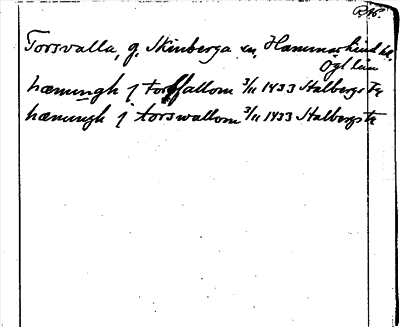 Torsvalla, g. Skänberga sn, Hammarkind hd,
Ögl län
hæmingh j torffallom 3/11 1433 Stalbergs Fr
hæmingh j torswallom 3/11 1433 Stalbergs Fr